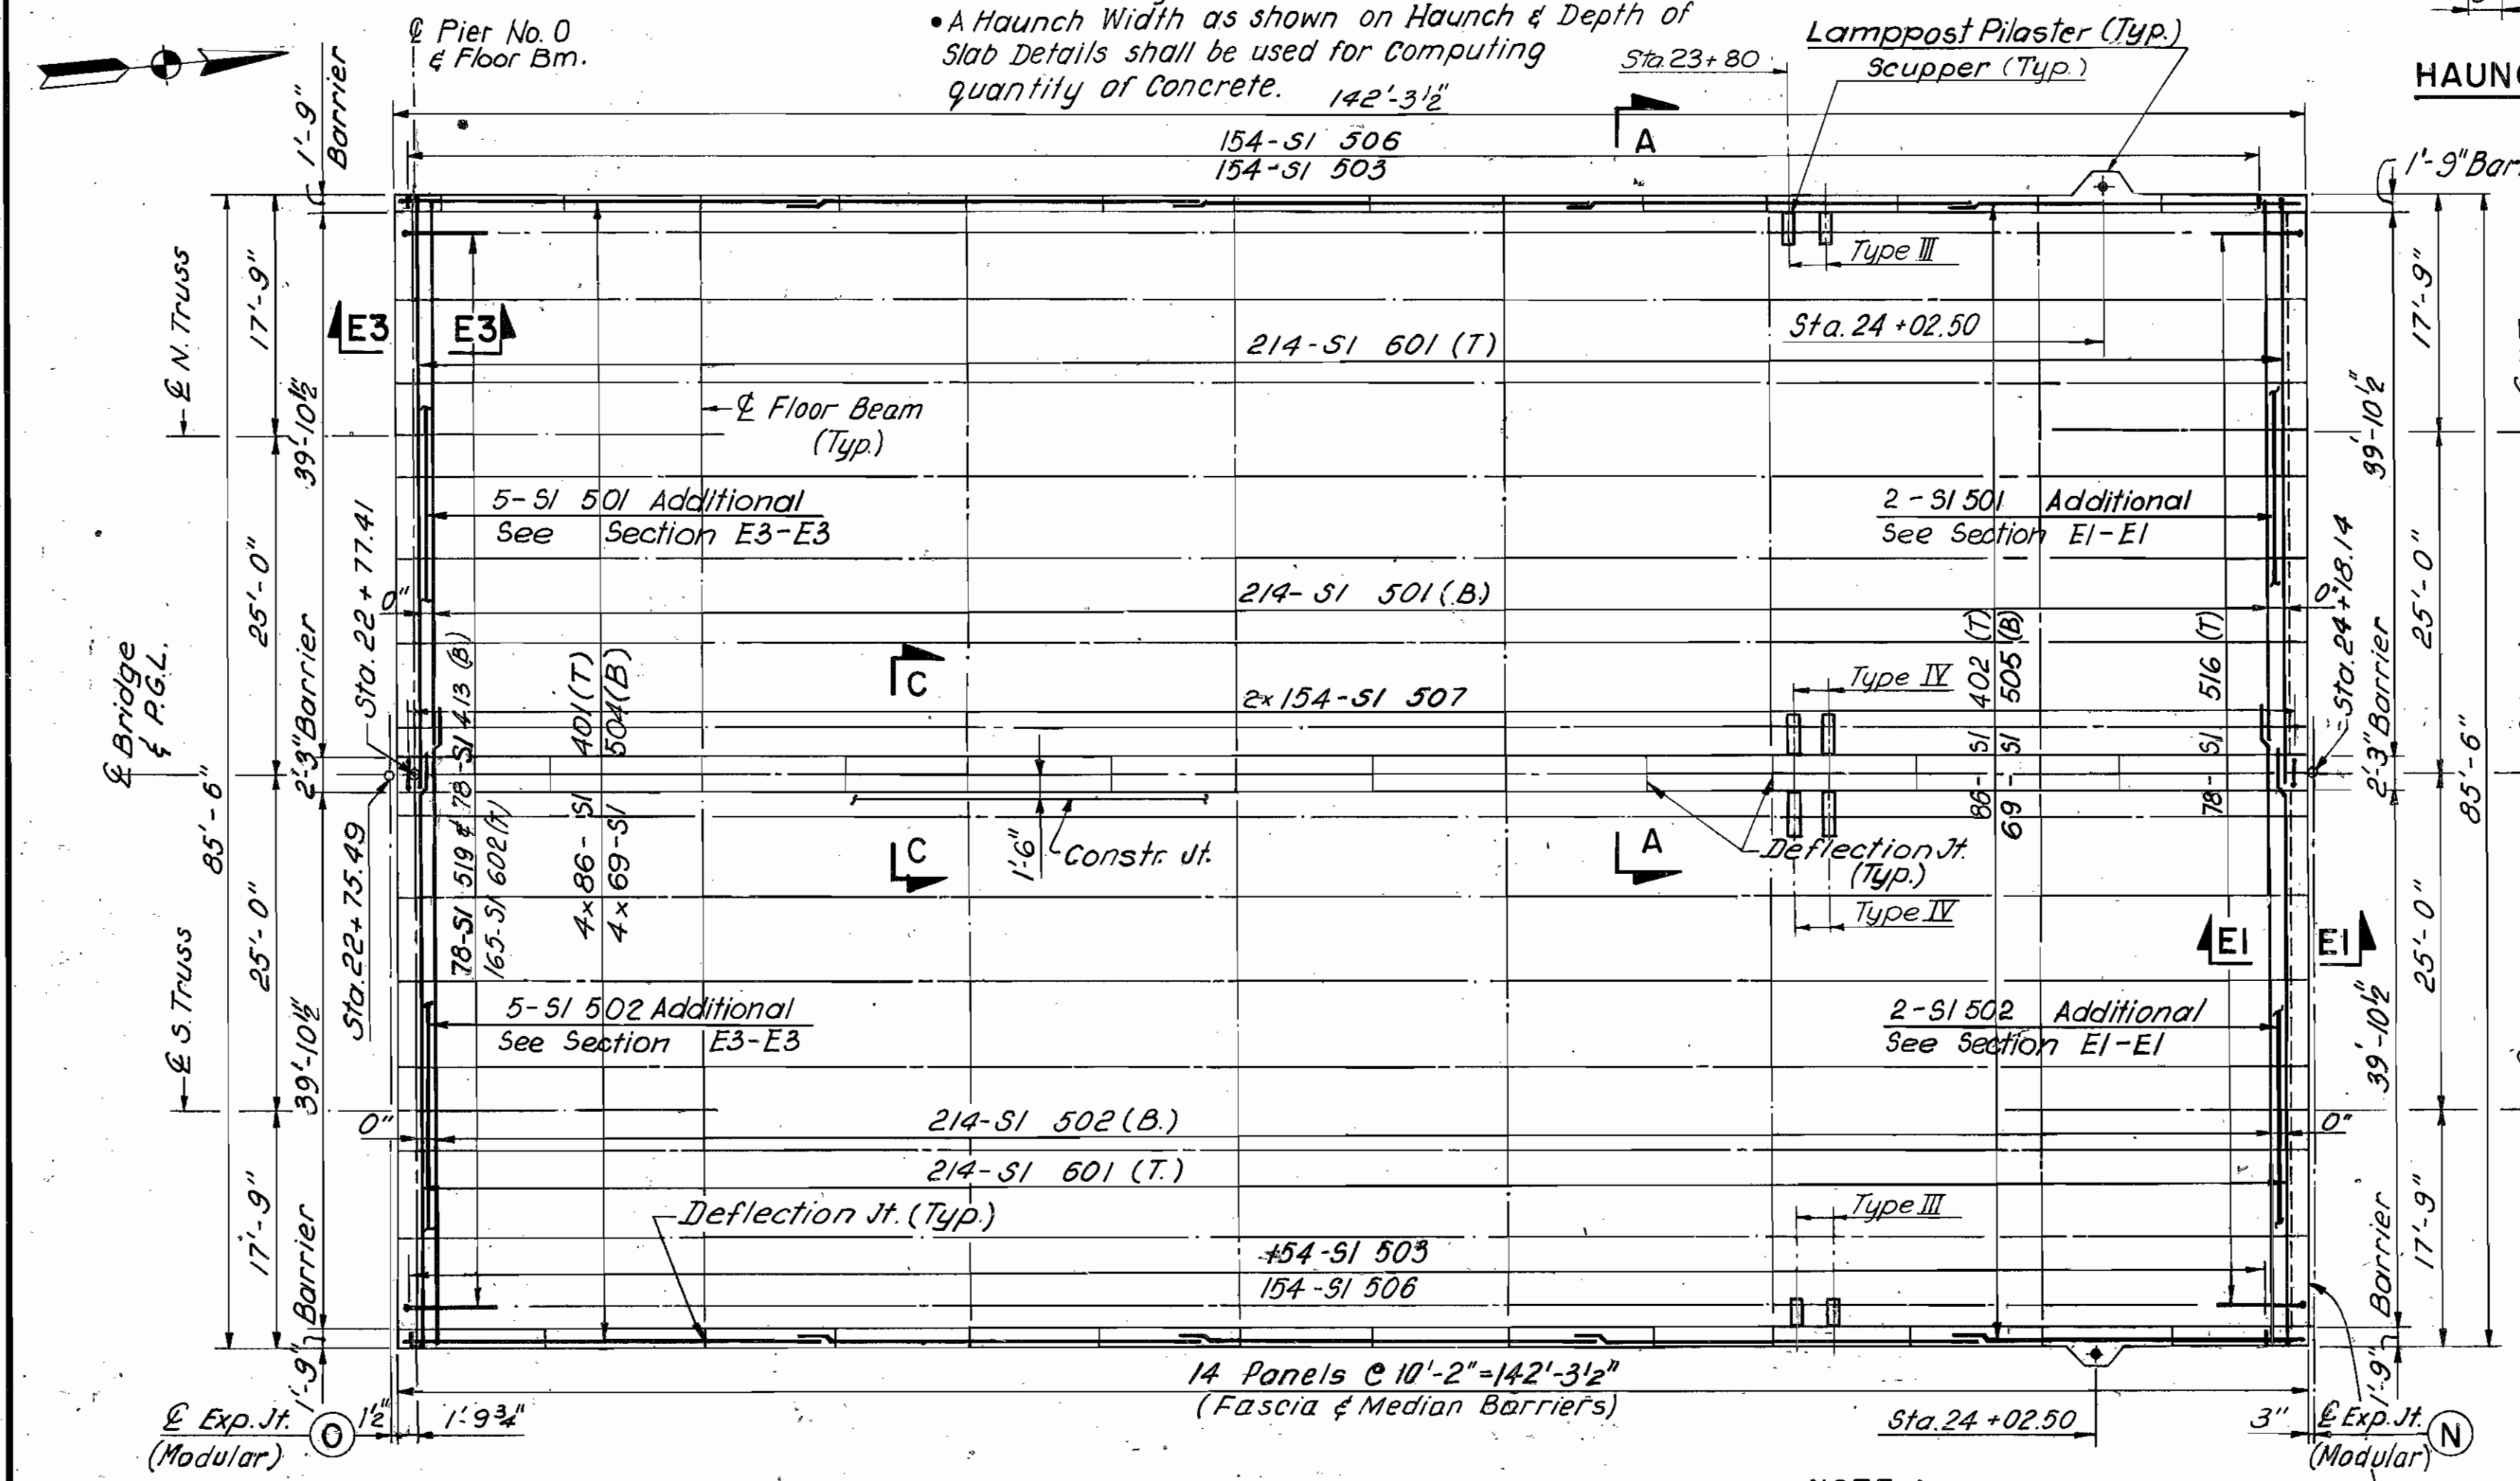 ℄ Pier No. 0
& Floor Bm.
• A Haunch Width as shown on Haunch & Depth of
Slab Details shall be used for Computing
quantity of Concrete.
142'-3½"
Sta. 23+80
Lamppost Pilaster (Typ.)
Scupper (Typ.)
HAUNC
1'-9"
Barrier
154-S1 506
154-S1 503
A
1'-9" Bar
17'-9"
℄ N. Truss
E3
E3
Type III
Sta. 24+02.50
214-S1 601 (T)
17'-9"
39'-10½"
℄ Floor Beam
(Typ.)
39'-10½"
5-S1 501 Additional
See Section E3-E3
2-S1 501 Additional
See Section E1-E1
25'-0"
Sta. 22+77.41
0"
214-S1 501 (B.)
0"
Sta. 24+18.14
25'-0"
℄ Bridge
& P.G.L.
85'-6"
2'-3" Barrier
78-S1 519 & 78-S1 413 (B)
165-S1 602 (T)
4x86-S1 401 (T)
4x69-S1 504 (B)
C
2x154-S1 507
Type IV
86-S1 402 (T)
69-S1 505 (B)
78-S1 516 (T)
2'-3" Barrier
85'-6"
Sta. 22+75.49
C
1'-6"
Constr. Jt.
A
Deflection Jt.
(Typ.)
Type IV
25'-0"
℄ S. Truss
39'-10½"
E1
E1
25'-0"
39'-10½"
5-S1 502 Additional
See Section E3-E3
2-S1 502 Additional
See Section E1-E1
0"
214-S1 502 (B.)
0"
214-S1 601 (T.)
17'-9"
Deflection Jt. (Typ.)
Type III
17'-9"
154-S1 503
154-S1 506
1'-9" Barrier
1'-9" Barrier
14 Panels @ 10'-2"=142'-3½"
(Fascia & Median Barriers)
℄ Exp. Jt.
(Modular)
O
1½"
1'-9¾"
Sta. 24+02.50
3"
℄ Exp. Jt.
(Modular)
N